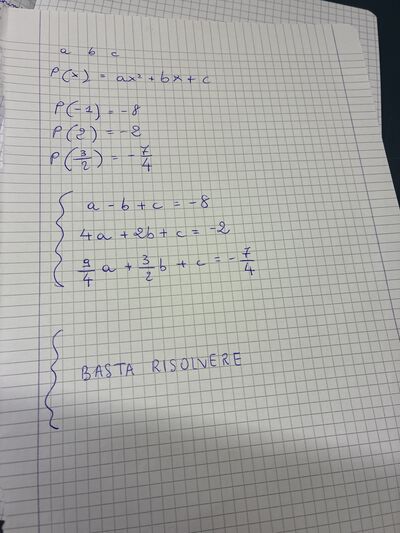 a b c
P(x) = ax² + bx + c
P(-1) = -8
P(2) = -2
P(3/2) = -7/4
a - b + c = -8
4a + 2b + c = -2
9/4 a + 3/2 b + c = -7/4
BASTA RISOLVERE